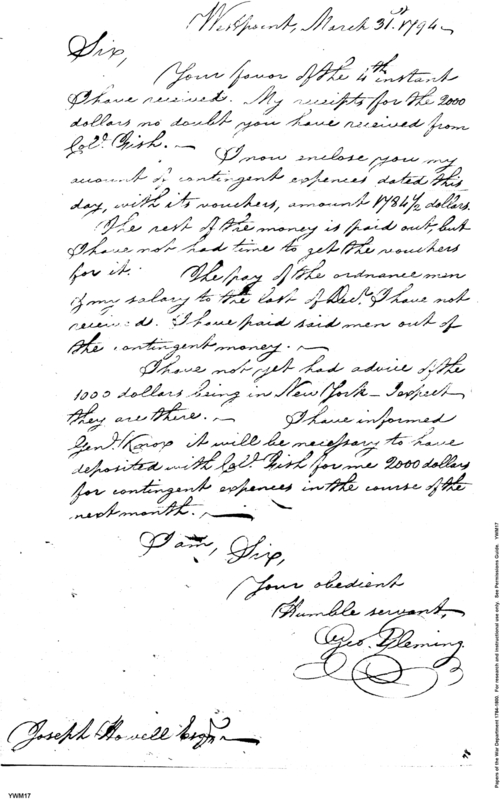 Westpoint, March 31.st 1794.
Sir,
Your favor of the 4th instant
I have received. My receipts for the 2000
dollars no doubt you have received from
Col.o Fish. — I now enclose you my
account of contingent expences dated this
day, with its vouchers, amount 1784 1/2 dollars.
The rest of the money is paid out, but
I have not had time to get the vouchers
for it. The pay of the ordnance men
& my salary to the last of Dec.r I have not
received. I have paid said men out of
the contingent money. —
I have not yet had advice of the
1000 dollars being in New York — I expect
they are there. — I have informed
Gen.l Knox it will be necessary to have
deposited with Col.o Fish for me 2000 dollars
for contingent expences in the course of the
next month. —
I am, Sir,
Your obedient
Humble servant,
Geo. Fleming.
Joseph Howell Esq.r
YWM17
Papers of the War Department 1784-1800. For research and instructional use only. See Permissions Guide. YWM17